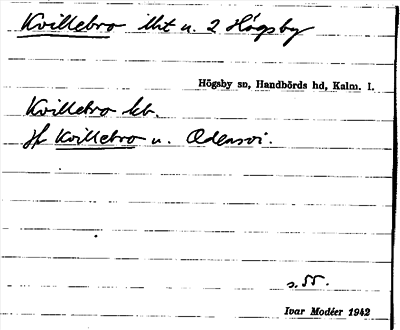 Kvillebro lht u. 2 Högsby
Högsby sn, Handbörds hd, Kalm. l.
Kvillebro kb.
Jf Kvillebro u. Odensvi.
s. 55.
Ivar Modéer 1942